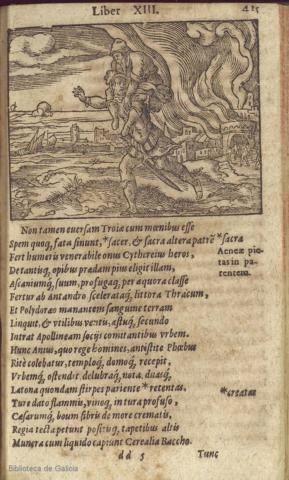 Liber XIII. 415
Non tamen euersam Troiæ cum mœnibus esse
Spem quoq; fata sinunt, *sacra, & sacra altera patrē *sacra
Fert humeris venerabile onus Cythereius heros, Aeneæ pie-
De tantisq́; opibus prædam pius eligit illam, tas in pa-
Ascaniumq́; suum, profugaq́; per æquora classe rentem.
Fertur ab Antandro scelerataq́; littora Thracum,
Et Polydoreo manantem sanguine terram
Linquit, & vtilibus ventis, æstuq́; secundo
Intrat Apollineam socijs comitantibus vrbem.
Hunc Anius, quo rege homines, antistite Phœbus
Ritè colebatur, temploq́; domoq́; recepit,
Vrbemq́; ostendit, delubraq́; nota, duasq́;
Latona quondam stirpes pariente *retentas, *creatas
Ture dato flammis, vinoq́; in tura profuso,
Cæsarumq́; boum fibris de more crematis,
Regia tecta petunt positiq́; tapetibus altis
Munera cum liquido capiunt Cerealia Baccho.
dd 5 Tunc
Biblioteca de Galicia